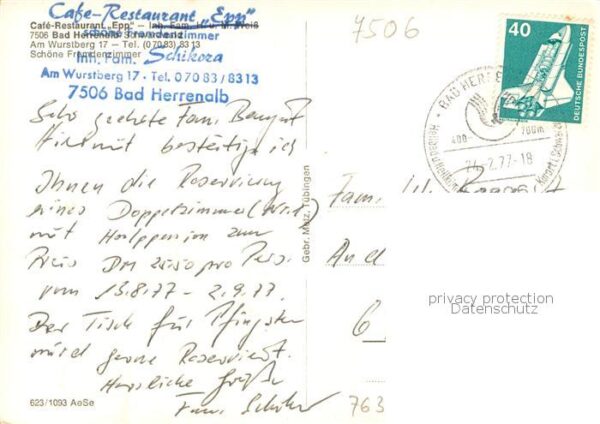 Cafe-Restaurant „Epp"
Café-Restaurant „Epp" — Inh. Fam. u. Weiß
schöne Fremdenzimmer
7508 Bad Herrenalb Schwarzwald
Am Wurstberg 17 – Tel. (07083) 8313
Inh. Fam. Schikora
Schöne Fremdenzimmer
Am Wurstberg 17 - Tel. 07083/8313
7506 Bad Herrenalb
7506
40
DEUTSCHE BUNDESPOST
BAD HERRENALB
400 700m
2.77-18
Sehr geehrte Fam.
Hiermit bestätige ich
Ihnen die Reservierung
eines Doppelzimmer
mit Halbpension zum
Preis DM pro Pers.
vom 13.8.77 - 2.9.77.
Der Tisch für Pfingsten
wird gerne Reserviert.
Herzliche Grüße
Fam. Schikora
Gebr. Metz, Tübingen
Fam.
An d
6
763
privacy protection
Datenschutz
623/1093 AeSe